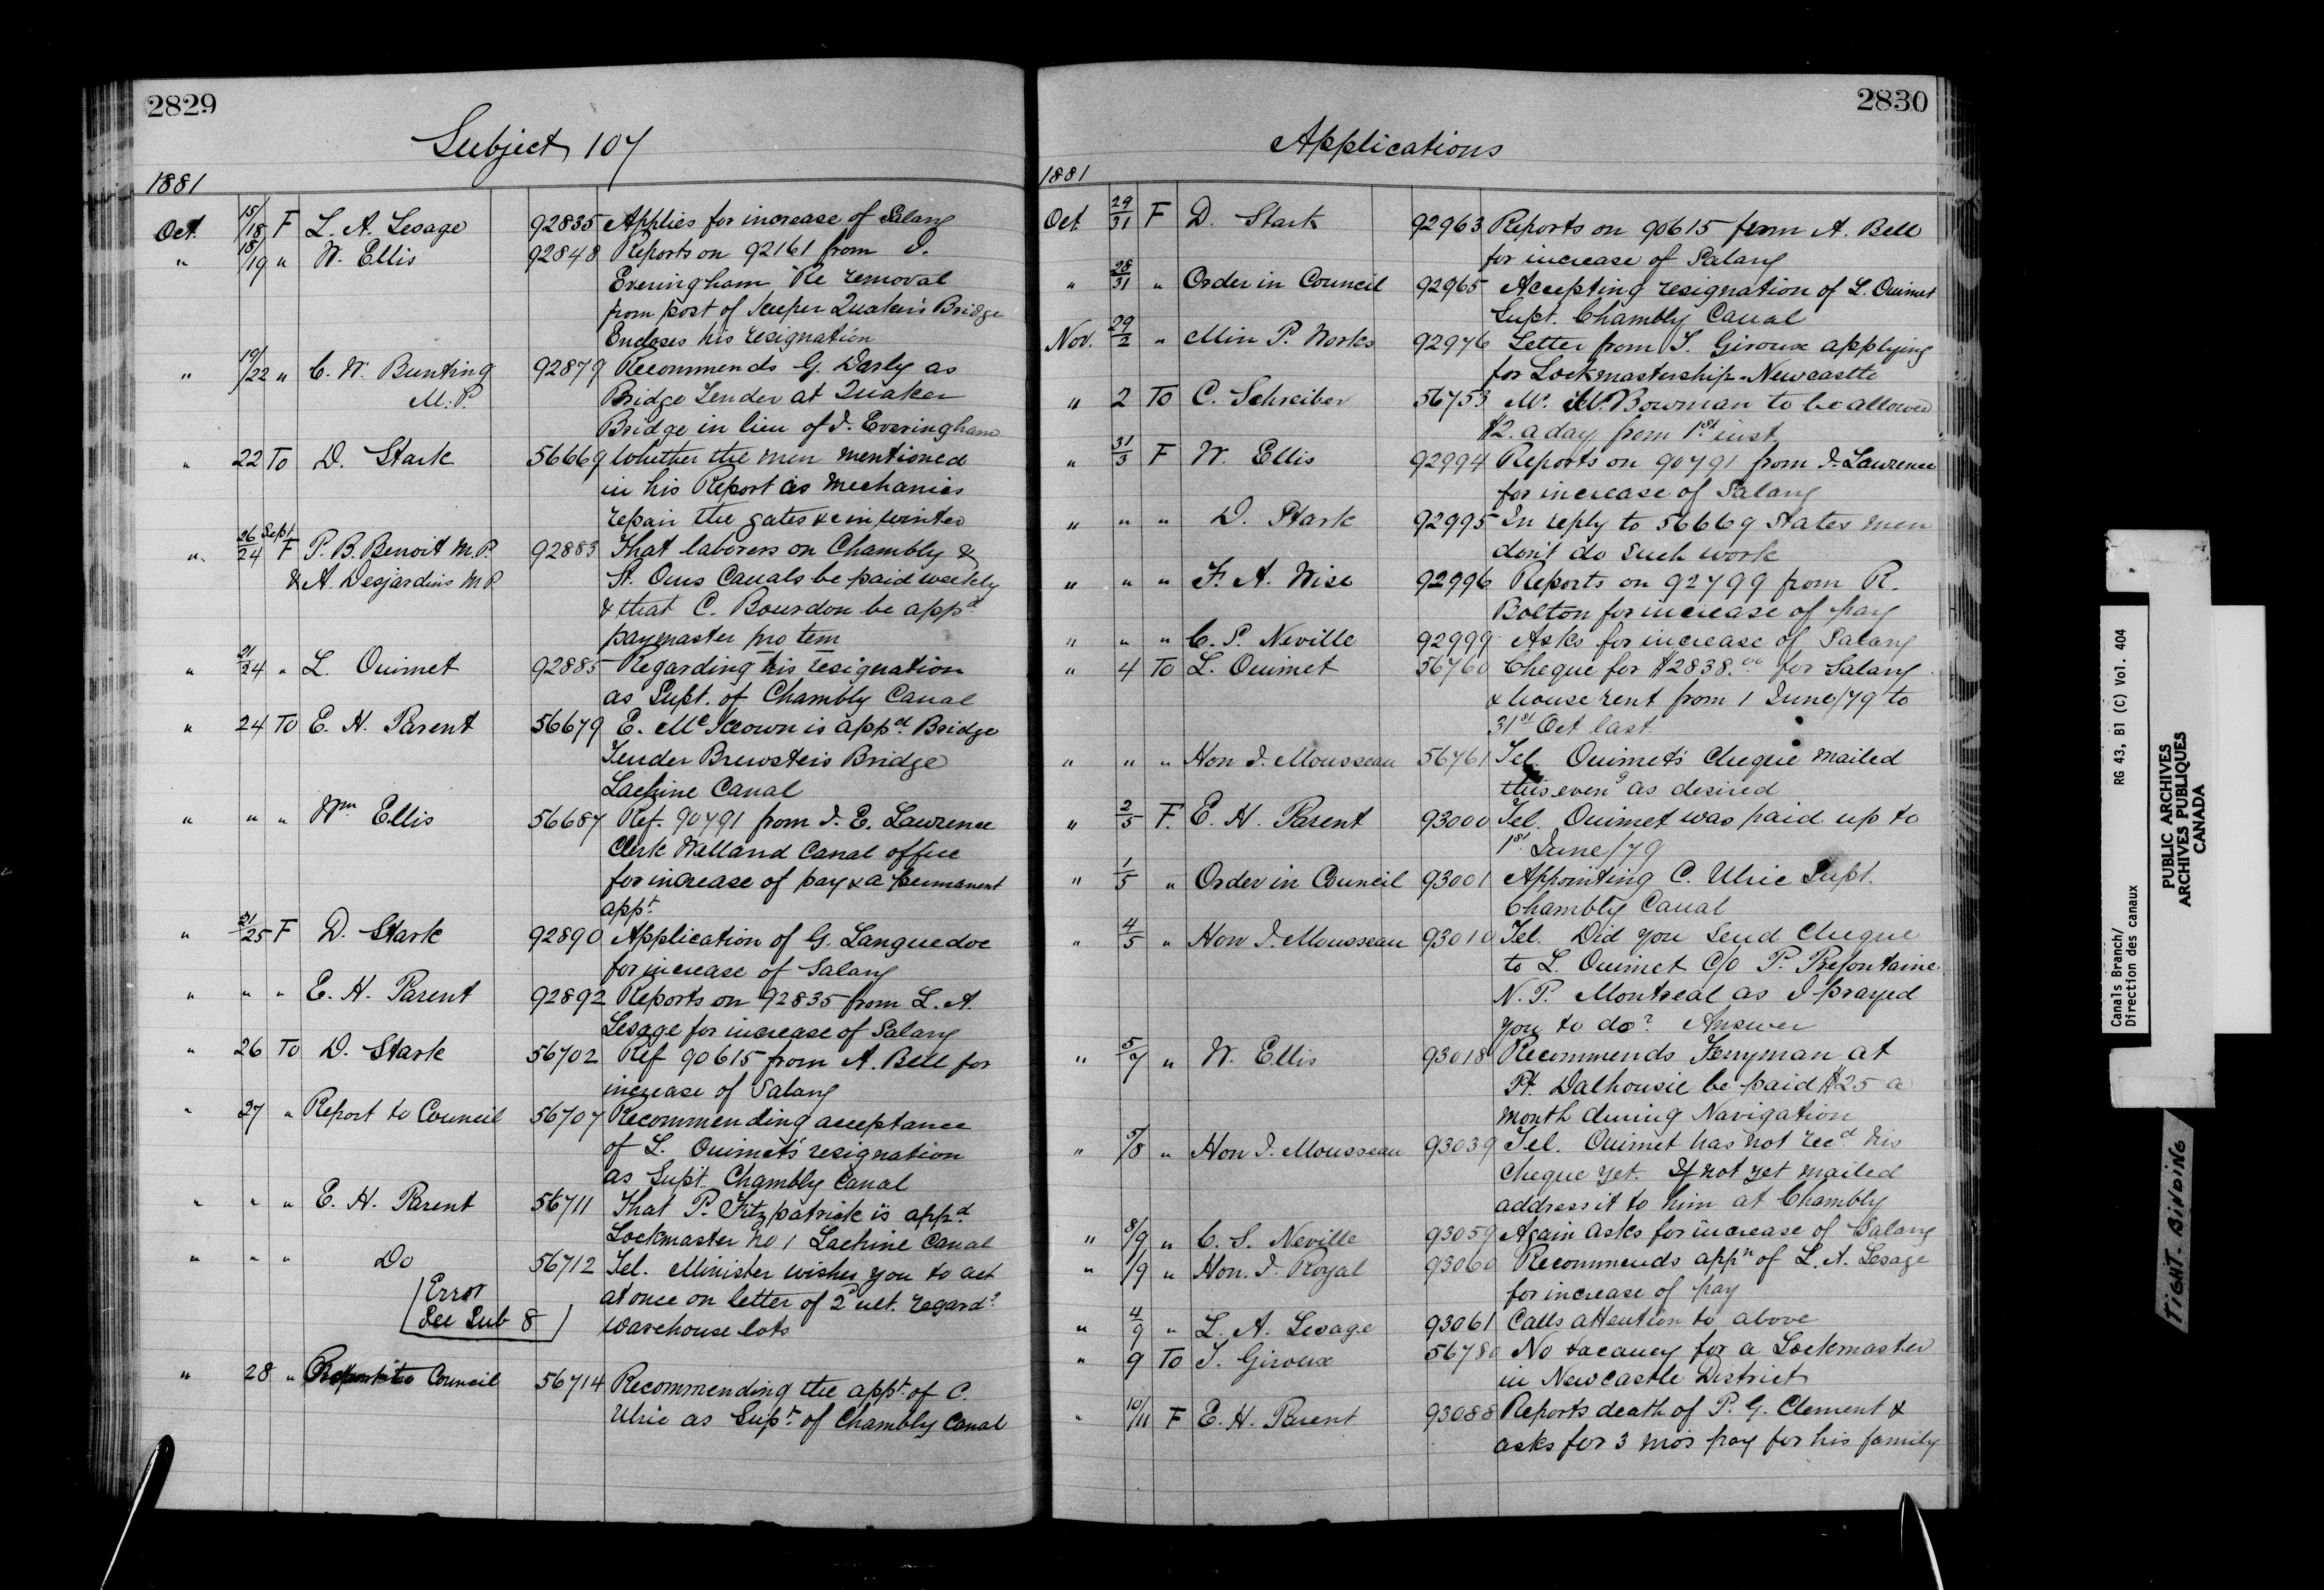 2829
Subject 107
1881
Oct. 15/18 F L. A. Lesage 92835 Applies for increase of Salary
" 18/19 " W. Ellis 92848 Reports on 92161 from J.
Everingham Re removal
from post of Keeper Quaker's Bridge
Encloses his resignation
" 19/22 " C. W. Bunting 92879 Recommends G. Darly as
M.P. Bridge Tender at Quaker
Bridge in lieu of J. Everingham
" 22 To D. Stark 56669 Whether the men mentioned
in his Report as mechanics
repair the gates &c in winter
" 26 Sept/24 F P. B. Benoit M.P. 92883 That laborers on Chambly &
& A. Desjardins M.P. St. Ours Canals be paid weekly
& that C. Bourdon be appd
paymaster pro tem
" 21/24 " L. Ouimet 92885 Regarding his resignation
as Supt. of Chambly Canal
" 24 To E. H. Parent 56679 E. McKeown is appd Bridge
Tender Brewster's Bridge
Lachine Canal
" " " Wm Ellis 56687 Ref. 90791 from J. E. Lawrence
Clerk Welland Canal office
for increase of pay & a permanent
appt
" 21/25 F D. Stark 92890 Application of G. Languedoc
for increase of Salary
" " " E. H. Parent 92892 Reports on 92835 from L. A.
Lesage for increase of Salary
" 26 To D. Stark 56702 Ref 90615 from A. Bell for
increase of Salary
" 27 " Report to Council 56707 Recommending acceptance
of L. Ouimet's resignation
as Supt. Chambly Canal
" " " E. H. Parent 56711 That P. Fitzpatrick is appd
Lockmaster No 1 Lachine Canal
" " " Do 56712 Tel. Minister wishes you to act
Error at once on letter of 2d ult. regardg
See Sub 8 Warehouse lots
" 28 " Report to Council 56714 Recommending the appt of C.
Ulric as Supt of Chambly Canal
2830
Applications
1881
Oct 29/31 F D. Stark 92963 Reports on 90615 from A. Bell
for increase of Salary
" 28/31 " Order in Council 92965 Accepting resignation of L. Ouimet
Supt. Chambly Canal
Nov. 29/2 " Min P. Works 92976 Letter from T. Giroux applying
for Lockmastership - Newcastle
" 2 To C. Schreiber 56753 Mr. W. Bowman to be allowed
$2. a day from 1st inst
" 31/3 F W. Ellis 92994 Reports on 90791 from J. Lawrence
for increase of Salary
" " " D. Stark 92995 In reply to 56669 States men
don't do such work
" " " F. A. Wise 92996 Reports on 92799 from R.
Bolton for increase of pay
" " " C. S. Neville 92999 Asks for increase of Salary
" 4 To L. Ouimet 56760 Cheque for $2838.00 for Salary
& house rent from 1 June/79 to
31st Oct last
" " " Hon J. Mousseau 56761 Tel. Ouimet's Cheque mailed
this eveng as desired
" 2/5 F. E. H. Parent 93000 Tel. Ouimet was paid up to
1st June/79
" 1/5 " Order in Council 93001 Appointing C. Ulric Supt.
Chambly Canal
" 4/5 " Hon J. Mousseau 93010 Tel. Did you send Cheque
to L. Ouimet C/O P. Prefontaine
N. P. Montreal as I prayed
you to do? Answer
" 5/7 " W. Ellis 93018 Recommends Ferryman at
Pt. Dalhousie be paid $25 a
month during Navigation
" 5/8 " Hon J. Mousseau 93039 Tel. Ouimet has not recd his
cheque yet. If not yet mailed
address it to him at Chambly
" 8/9 " C. S. Neville 93059 Again asks for increase of Salary
" 1/9 " Hon. J. Royal 93060 Recommends appn of L. A. Lesage
for increase of pay
" 4/9 " L. A. Lesage 93061 Calls attention to above
" 9 To T. Giroux 56780 No vacancy for a Lockmaster
in Newcastle District
" 10/11 F E. H. Parent 93088 Reports death of P. G. Clement &
asks for 3 mos pay for his family
Canals Branch/ RG 43, B1 (C) Vol. 404
Direction des canaux
PUBLIC ARCHIVES
ARCHIVES PUBLIQUES
CANADA
TIGHT BINDING